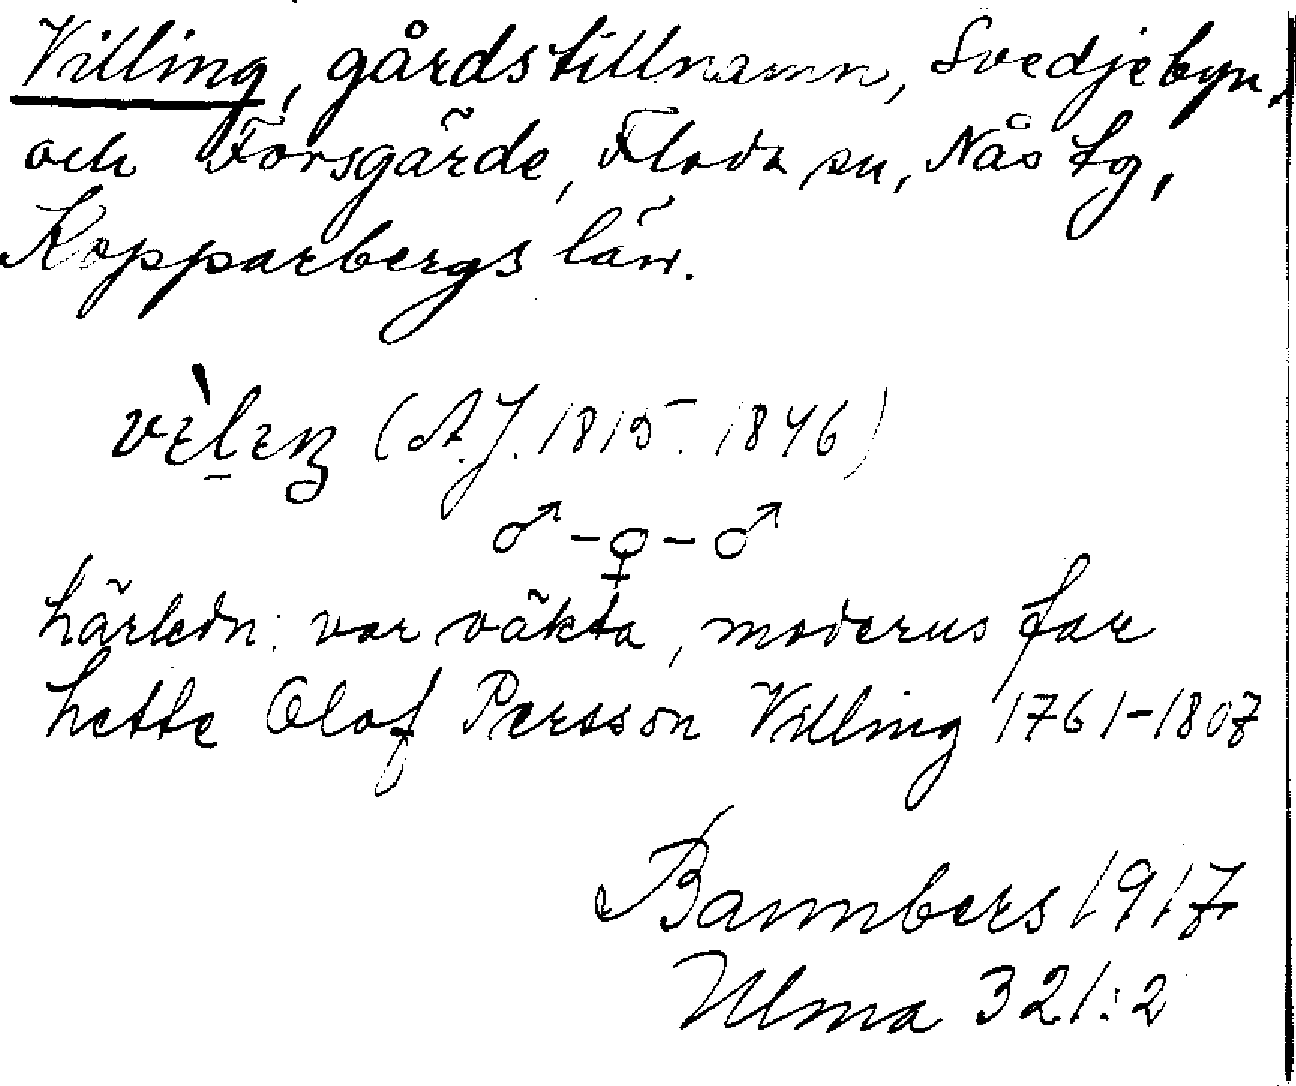 Villing, gårdstillnamn, Svedjebyn,
och Forsgärde, Floda sn, Nås tg,
Kopparbergs län.
(A.J. 1815. 1846)
♂-♀-♂
härledn: var väkta, moderns far
hette Olof Persson Villing 1761-1807
Bannbers 1917
Ulma 321:2